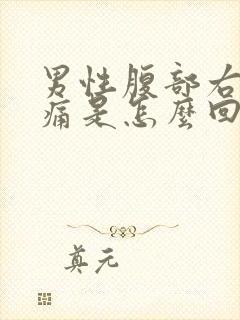 男性腹部右
痛是怎麼回
真元